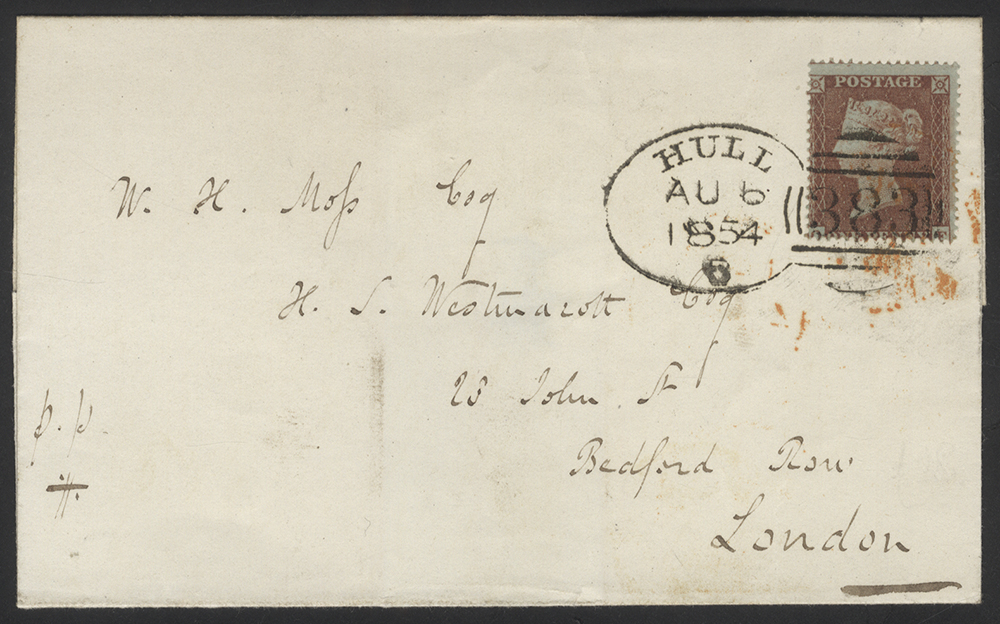 POSTAGE
HULL
AU 6
1854
6
383
W. H. Moss Esq
H. S. Westmacott Esq
28 John St
Bedford Row
London
p.p.